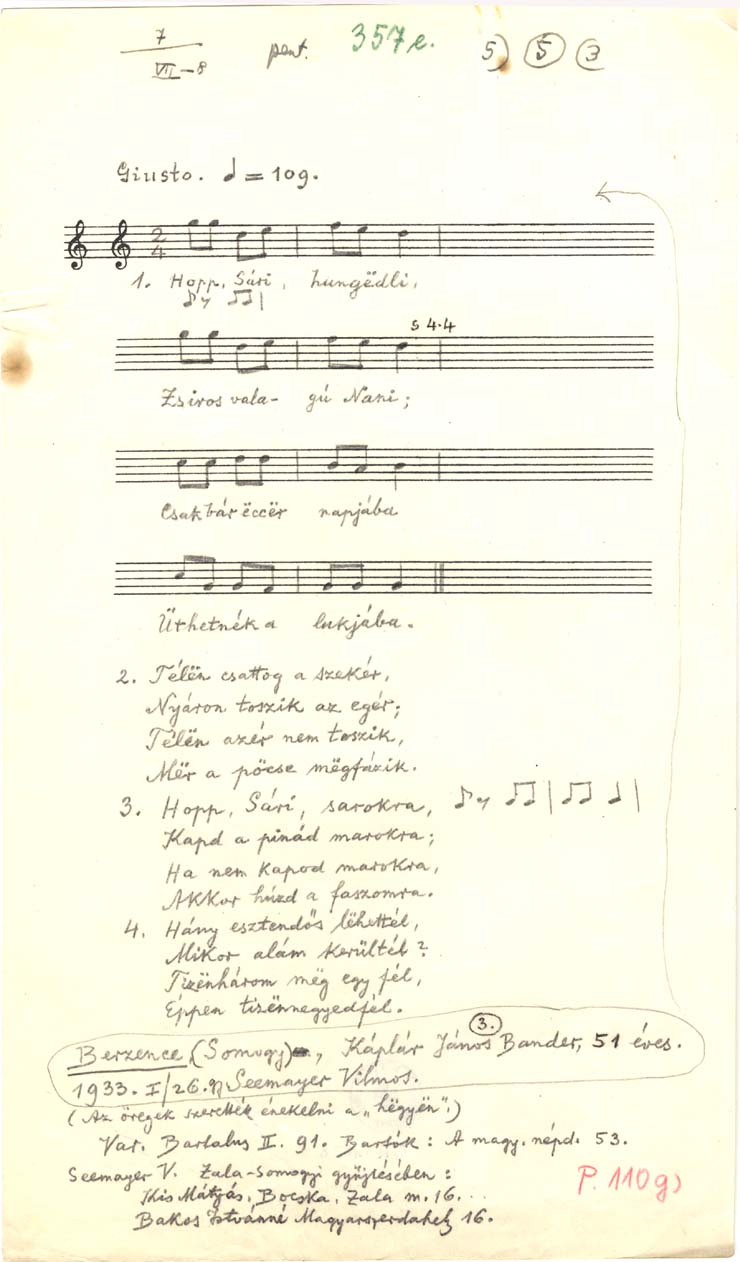 7
VII-8
pent.
357e.
5) 5 3
Giusto. ♩ = 109.
2
4
1. Hopp, Sári, hungëdli,
5 4·4
Zsiros vala- gú Nani;
Csak bár ëccër napjába
Üthetnék a lukjába.
2. Télën csattog a szekér,
Nyáron toszik az egér;
Télën azér nem toszik,
Mër a pöcse mëgfázik.
3. Hopp, Sári, sarokra,
Kapd a pinád marokra;
Ha nem kapod marokra,
Akkor húzd a faszomra.
4. Hány esztendős lëhettél,
Mikor alám kerültél?
Tizënhárom mëg egy fél,
Éppen tizënnegyedfél.
3.
Berzence (Somogy), Káplár János Bander, 51 éves.
1933. I/26. Seemayer Vilmos.
(Az öregek szerették énekelni a „hëgyën".)
Var. Bartalus II. 91. Bartók: A magy. népd. 53.
Seemayer V. Zala-Somogyi gyűjtésében:
Kis Mátyás, Bocska, Zala m. 16...
Bakos Istvánné Magyarszerdahely 16.
P. 110g)